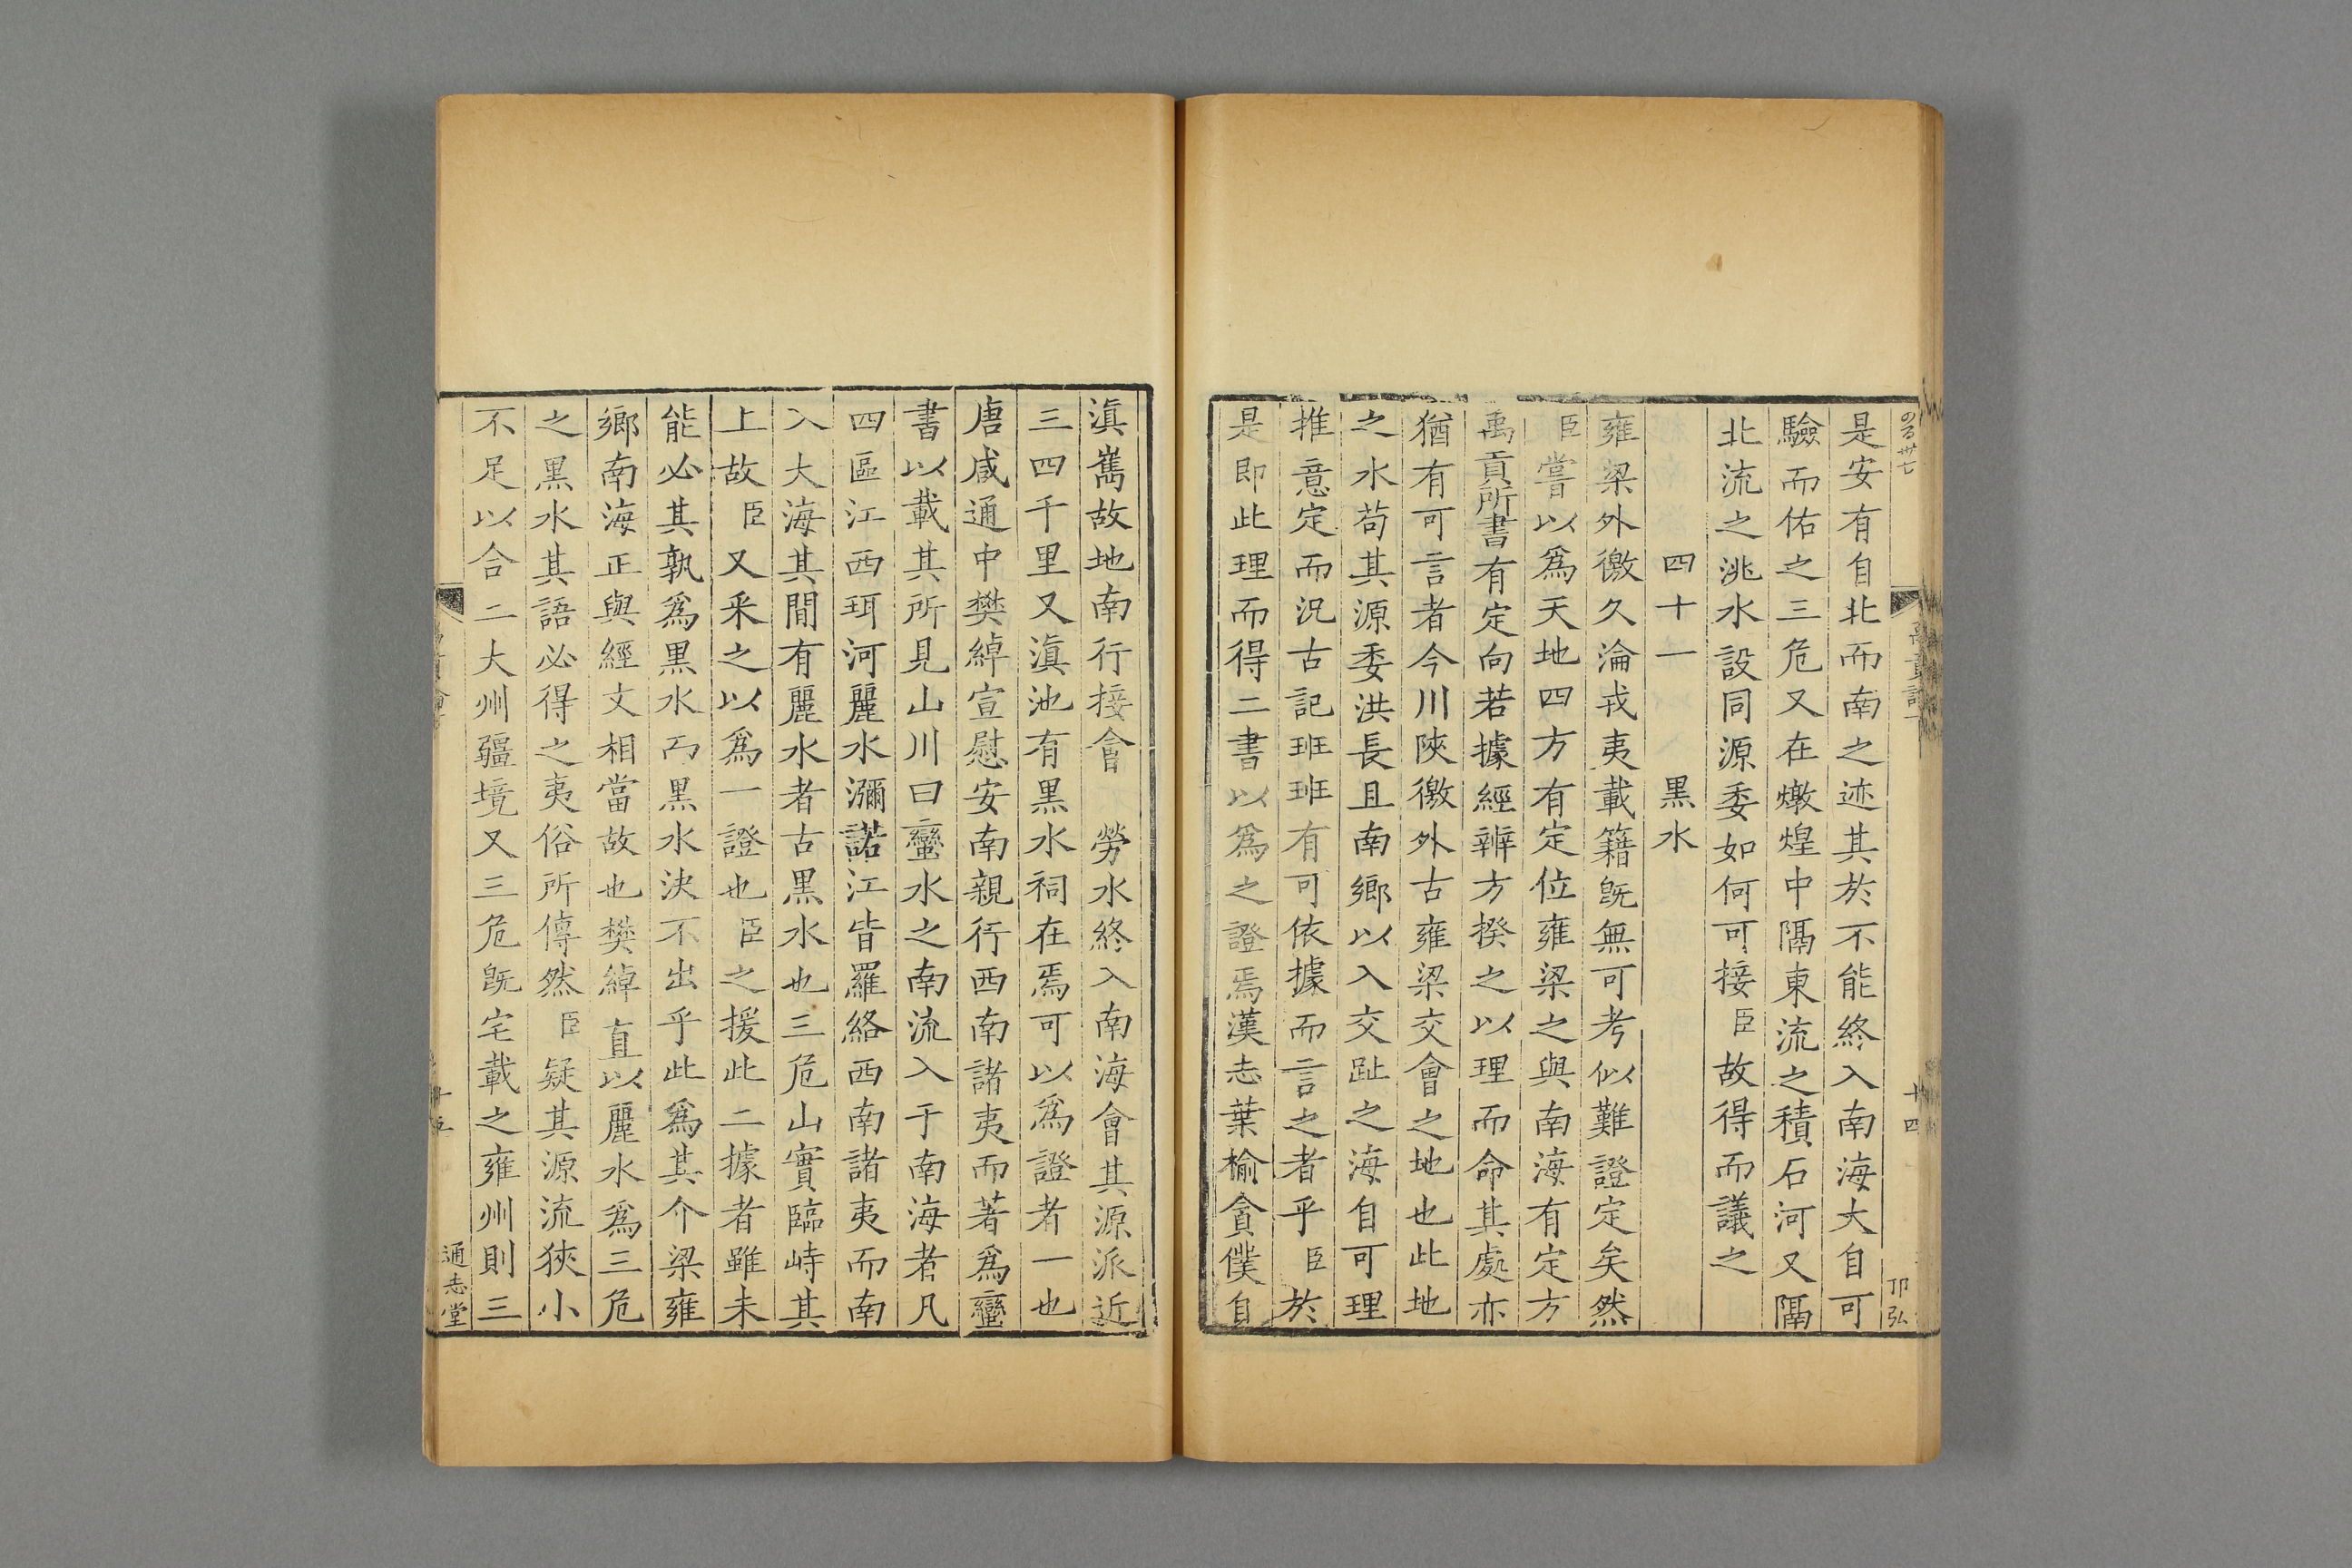 是安有自北而南之迹其於不能終入南海大自可
驗而佑之三危又在燉煌中隔東流之積石河又隔
北流之洮水設同源委如何可接臣故得而議之
四十一　黒水
雍梁外徼久淪戎夷載籍旣無可考似難證定矣然
臣嘗以爲天地四方有定位雍梁之與南海有定方
禹貢所書有定向若據經辨方揆之以理而命其處亦
猶有可言者今川陜徼外古雍梁交會之地也此地
之水苟其源委洪長且南鄉以入交趾之海自可理
推意定而況古記班班有可依據而言之者乎臣於
是即此理而得二書以爲之證焉漢志葉榆貪僕自
十四
滇嶲故地南行接會　勞水終入南海會其源派近
三四千里又滇池有黒水祠在焉可以爲證者一也
唐咸通中樊綽宣慰安南親行西南諸夷而著爲蠻
書以載其所見山川曰蠻水之南流入于南海者凡
四區江西珥河麗水瀰諾江皆羅絡西南諸夷而南
入大海其閒有麗水者古黒水也三危山實臨峙其
上故臣又采之以爲一證也臣之援此二據者雖未
能必其孰爲黒水而黒水決不出乎此爲其介梁雍
鄉南海正與經文相當故也樊綽直以麗水爲三危
之黒水其語必得之夷俗所傳然臣疑其源流狹小
不足以合二大州疆境又三危旣宅載之雍州則三
通志堂